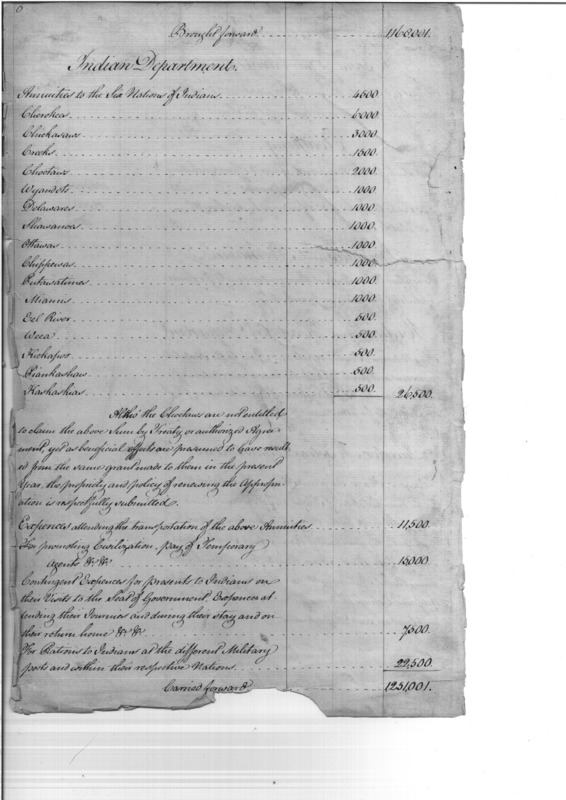 6
Brought forward 1168,001.
Indian Department.
Annuities to the Six Nations of Indians 4500
Cherokea 6000
Chickasaws 3000
Creeks 1500
Choctaws 2000
Wyandots 1000
Delawares 1000
Shawanoes 1000
Ottawas 1000
Chippewas 1000
Putawatimes 1000
Miamis 1000
Eel River 500
Weea 500
Kickapoo 500
Piankashaw 500
Kaskaskias 500. 26,500
Altho' the Choctaws are not entitled
to claim the above Sum by Treaty or authorized Agree-
ment, yet as beneficial effects are presumed to have result-
ed from the same grant made to them in the present
Year, the propriety and policy of renewing the Appropri-
ation is respectfully submitted.
Expences attending the transportation of the above Annuities 11,500.
For promoting Civilization, pay of Temporary
Agents &c &c 15000
Contingent Expences for presents to Indians on
their Visits to the Seat of Government, Expences at-
tending their Journies and during their stay and on
their return home &c &c 7500.
For Rations to Indians at the different Military
posts and within their respective Nations 22,500.
Carried forward 1251,001.